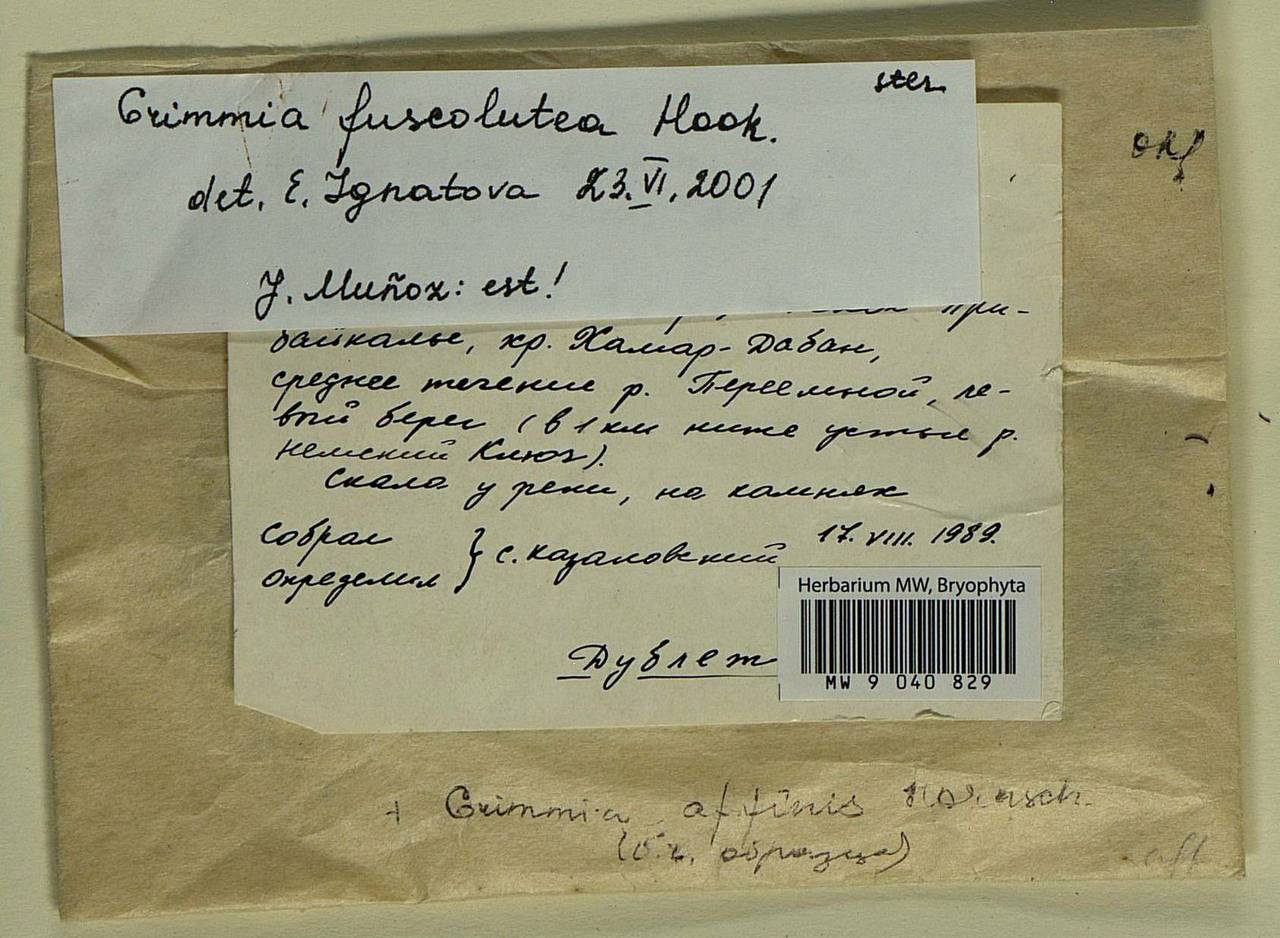 ster.
Grimmia fuscolutea Hook.
det. E. Ignatova 23.VI.2001
J. Muñoz: est!
при-
байкалье, хр. Хамар-Дабан,
среднее течение р. Переемной, ле-
вый берег (в 1 км ниже устья р.
Немский Ключ).
Скала у реки, на камнях
17.VIII.1989.
Собрал
определил } С. Казановский
Дублет
Herbarium MW, Bryophyta
MW 9 040 829
+ Grimmia affinis Hornsch.
(б.ч. образца)
aff